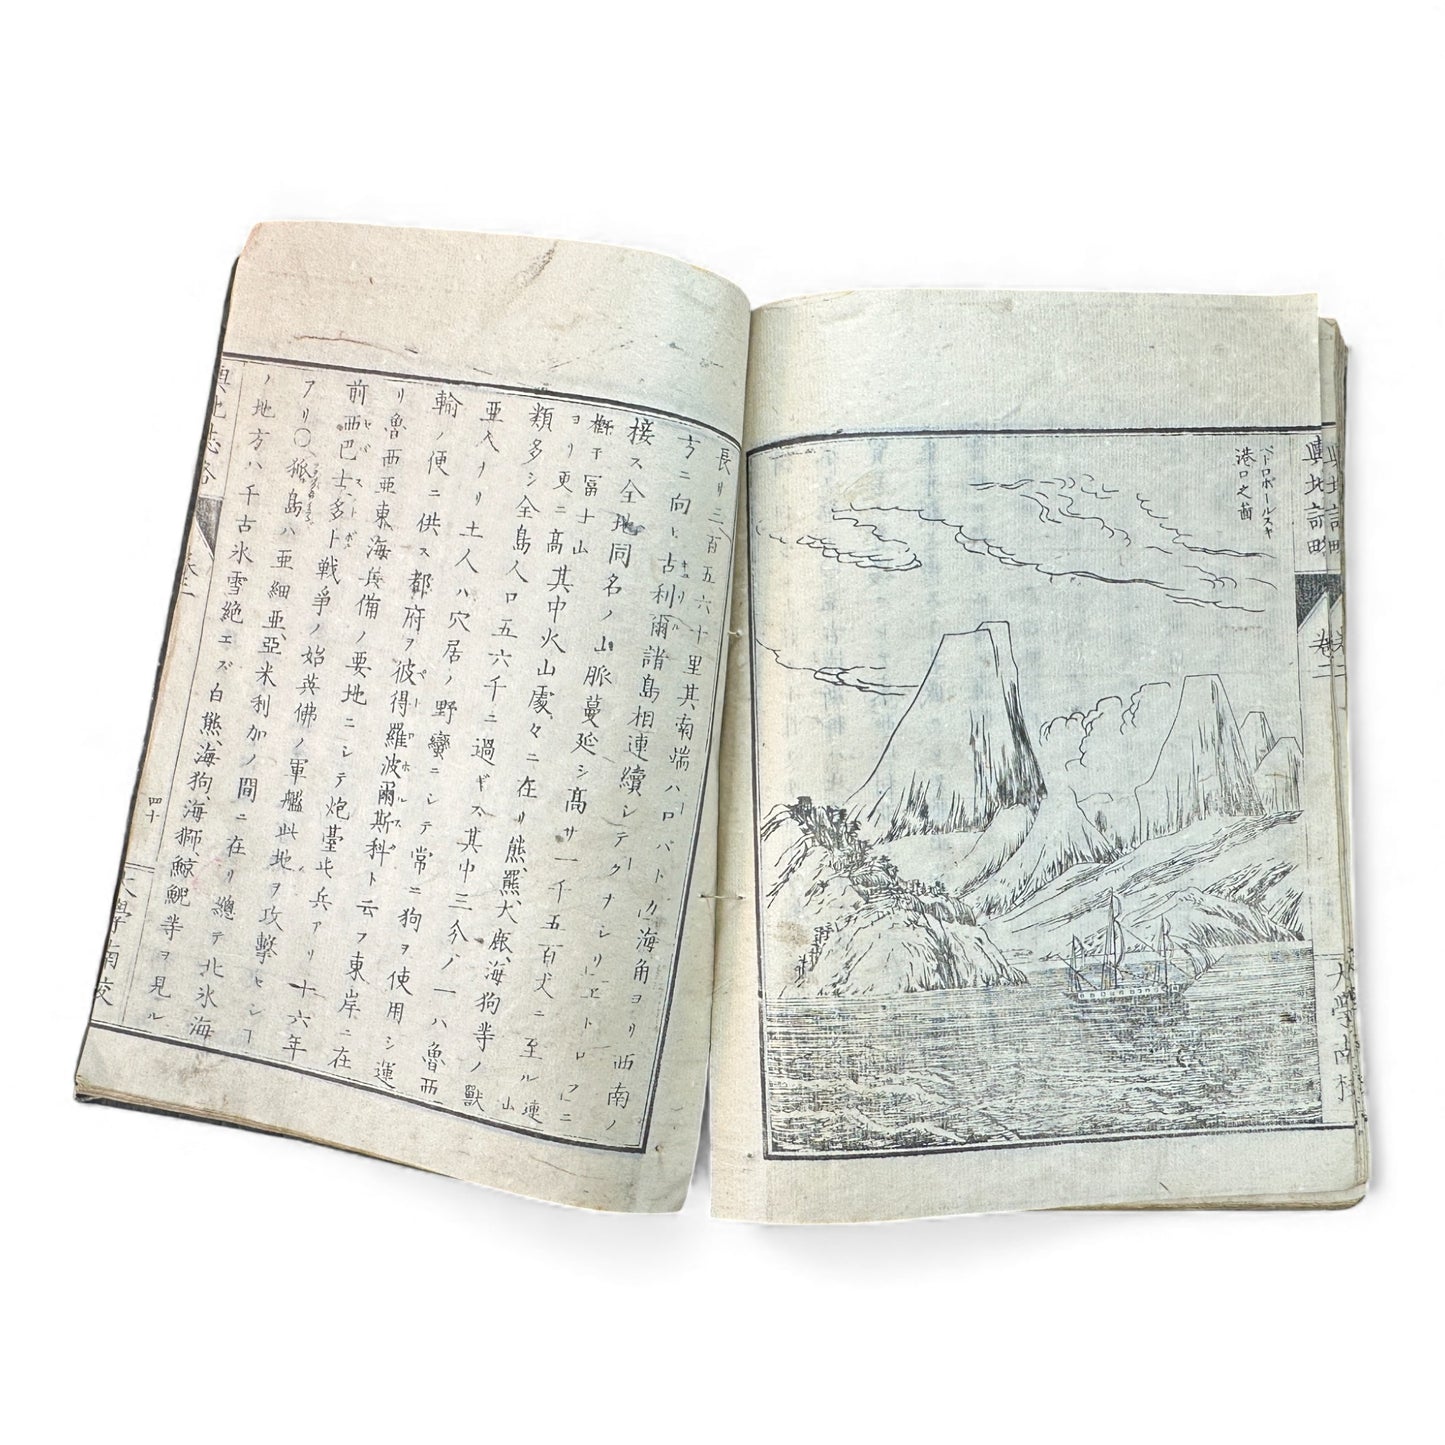 輿地誌略
巻二
大學南校
ペートロポールスキ
港口之圖
長サ三百五六十里其南端ハロパートカ海角ヨリ西南ノ
方ニ向ヒ古利爾諸島相連續シテクナシリエトロフニ
接ス全地同名ノ山脈蔓延シ高サ一千五百丈ニ至ル連山
概子冨士山ヨリ更ニ髙其中火山處々ニ在リ熊、羆、犬、鹿、海狗等ノ獸
類多シ全島人口五六千ニ過ギス其中三分ノ一ハ魯西
亜人ナリ土人ハ穴居ノ野蠻ニシテ常ニ狗ヲ使用シ運
輸ノ便ニ供ス都府ヲ彼得羅波爾斯科ト云フ東岸ニ在
リ魯西亜東海兵備ノ要地ニシテ炮臺屯兵アリ十六年
前西巴士多卜戰爭ノ始英佛ノ軍艦此地ヲ攻擊セシコ
アリ〇狐島ハ亜細亜、亞米利加ノ間ニ在リ總テ北氷海
ノ地方ハ千古氷雪絶エズ白熊、海狗、海獅、鯨鯢等ヲ見ル
輿地誌略
巻二
四十
大學南校